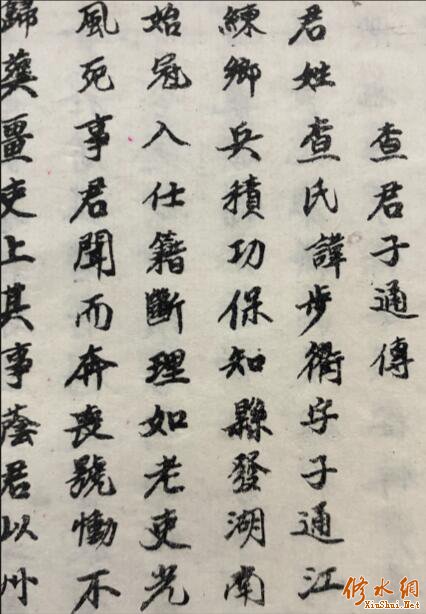 查君子通傳
君姓查氏諱步衢字子通江
練鄉兵積功保知縣發湖南
始冠入仕籍斷理如老吏光
風死事君聞而奔喪號慟不
歸葬畺吏上其事蔭君以州
修水網
XiuShui.Net